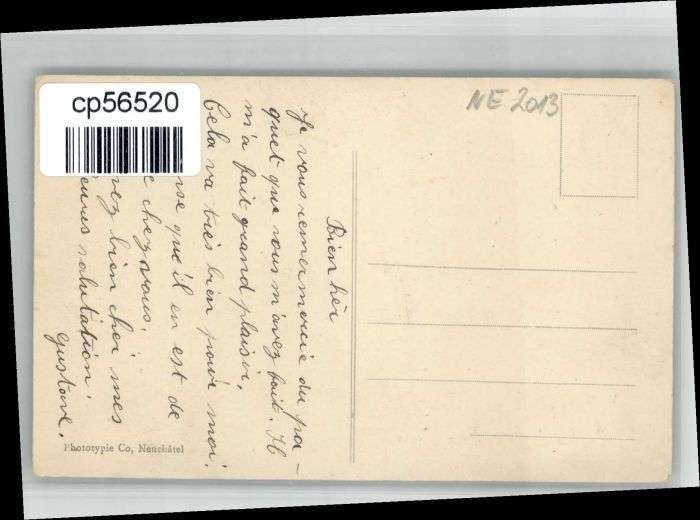 cp56520
NE 2013
Bien hèr
Je vous remermercie du pa-
quet que vous m'avez fait. Il
m'a fait grand plaisir,
Cela va très bien pour moi.
que'il en est de
chez vous.
bien cheì mes
salutation.
Gustave.
Phototypie Co, Neuchâtel